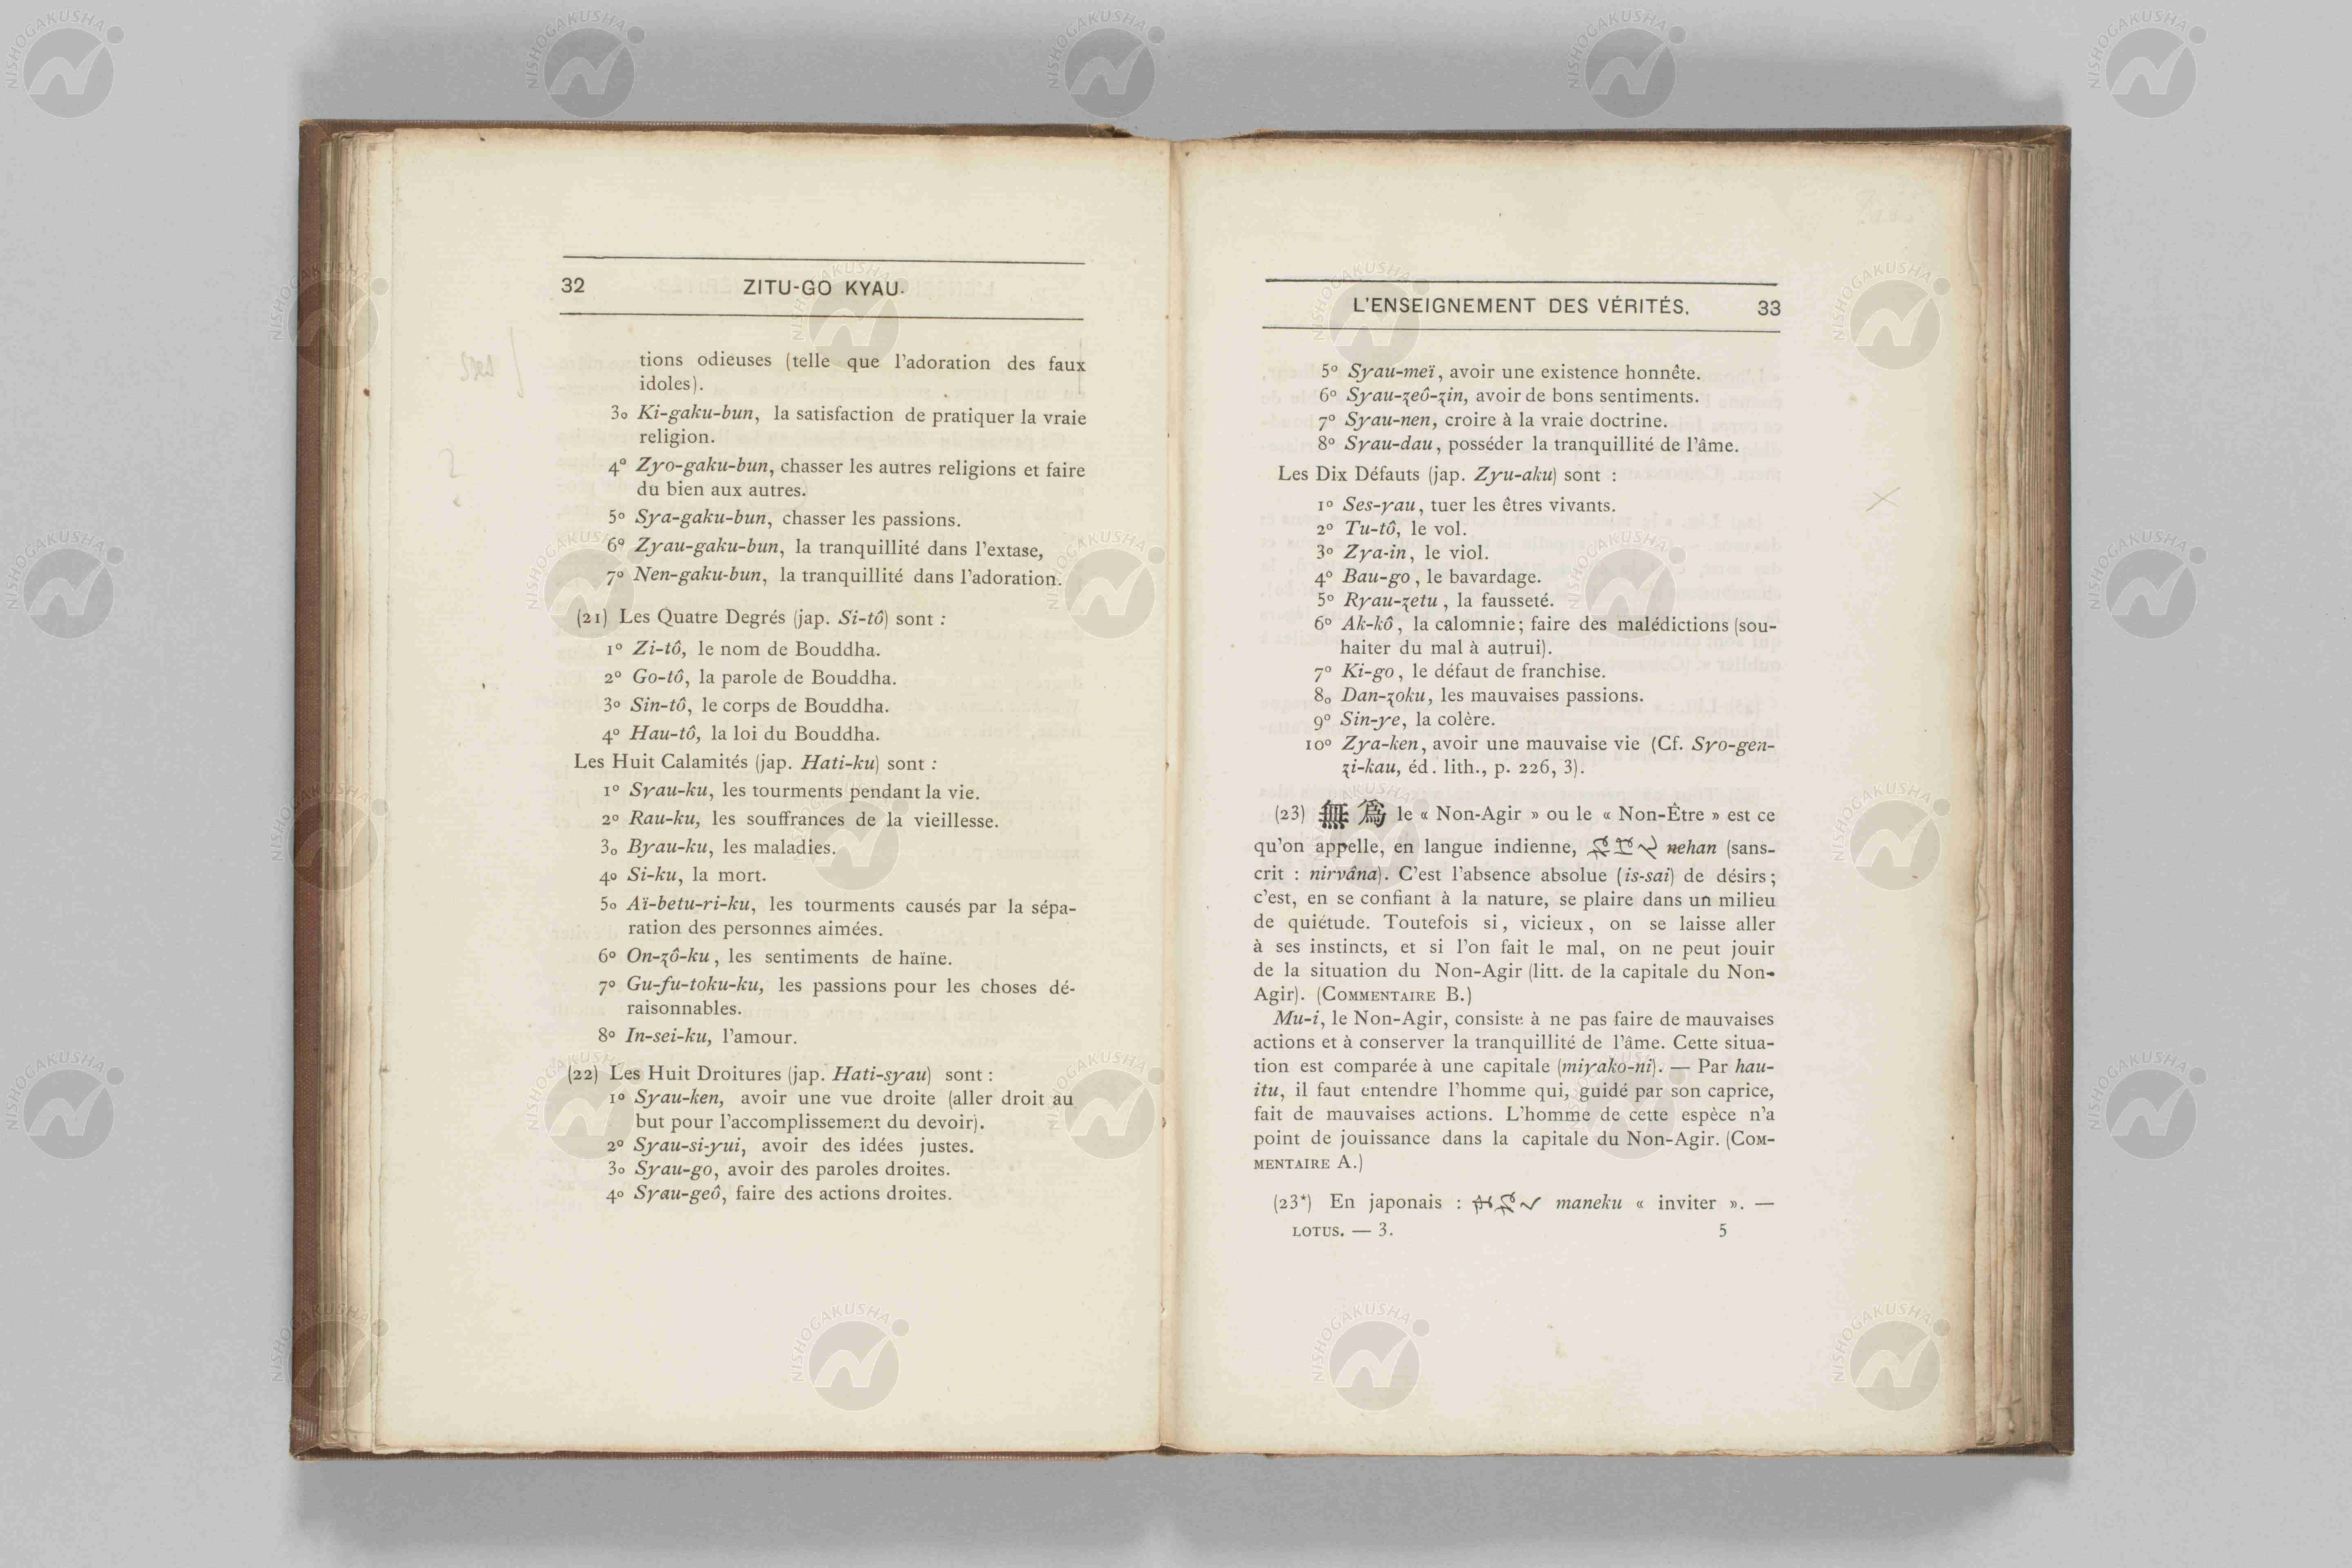 32 ZITU-GO KYAU.
tions odieuses (telle que l'adoration des faux
idoles).
3o Ki-gaku-bun, la satisfaction de pratiquer la vraie
religion.
4° Zyo-gaku-bun, chasser les autres religions et faire
du bien aux autres.
5o Sya-gaku-bun, chasser les passions.
6° Zyau-gaku-bun, la tranquillité dans l'extase,
7o Nen-gaku-bun, la tranquillité dans l'adoration.
(21) Les Quatre Degrés (jap. Si-tô) sont :
1o Zi-tô, le nom de Bouddha.
2o Go-tô, la parole de Bouddha.
3o Sin-tô, le corps de Bouddha.
4o Hau-tô, la loi du Bouddha.
Les Huit Calamités (jap. Hati-ku) sont :
1o Syau-ku, les tourments pendant la vie.
2o Rau-ku, les souffrances de la vieillesse.
3o Byau-ku, les maladies.
4o Si-ku, la mort.
5o Aï-betu-ri-ku, les tourments causés par la sépa-
ration des personnes aimées.
6o On-zô-ku, les sentiments de haïne.
7o Gu-fu-toku-ku, les passions pour les choses dé-
raisonnables.
8o In-sei-ku, l'amour.
(22) Les Huit Droitures (jap. Hati-syau) sont :
1o Syau-ken, avoir une vue droite (aller droit au
but pour l'accomplissement du devoir).
2o Syau-si-yui, avoir des idées justes.
3o Syau-go, avoir des paroles droites.
4o Syau-geô, faire des actions droites.
L'ENSEIGNEMENT DES VÉRITÉS. 33
5o Syau-meï, avoir une existence honnête.
6o Syau-zeô-zin, avoir de bons sentiments.
7o Syau-nen, croire à la vraie doctrine.
8o Syau-dau, posséder la tranquillité de l'âme.
Les Dix Défauts (jap. Zyu-aku) sont :
1o Ses-yau, tuer les êtres vivants.
2o Tu-tô, le vol.
3o Zya-in, le viol.
4o Bau-go, le bavardage.
5o Ryau-zetu, la fausseté.
6o Ak-kô, la calomnie; faire des malédictions (sou-
haiter du mal à autrui).
7o Ki-go, le défaut de franchise.
8o Dan-zoku, les mauvaises passions.
9o Sin-ye, la colère.
10o Zya-ken, avoir une mauvaise vie (Cf. Syo-gen-
zi-kau, éd. lith., p. 226, 3).
(23) 無爲 le « Non-Agir » ou le « Non-Être » est ce
qu'on appelle, en langue indienne, nehan (sans-
crit : nirvâna). C'est l'absence absolue (is-sai) de désirs;
c'est, en se confiant à la nature, se plaire dans un milieu
de quiétude. Toutefois si, vicieux, on se laisse aller
à ses instincts, et si l'on fait le mal, on ne peut jouir
de la situation du Non-Agir (litt. de la capitale du Non-
Agir). (COMMENTAIRE B.)
Mu-i, le Non-Agir, consiste à ne pas faire de mauvaises
actions et à conserver la tranquillité de l'âme. Cette situa-
tion est comparée à une capitale (miyako-ni). — Par hau-
itu, il faut entendre l'homme qui, guidé par son caprice,
fait de mauvaises actions. L'homme de cette espèce n'a
point de jouissance dans la capitale du Non-Agir. (COM-
MENTAIRE A.)
(23*) En japonais : maneku « inviter ». —
LOTUS. — 3. 5